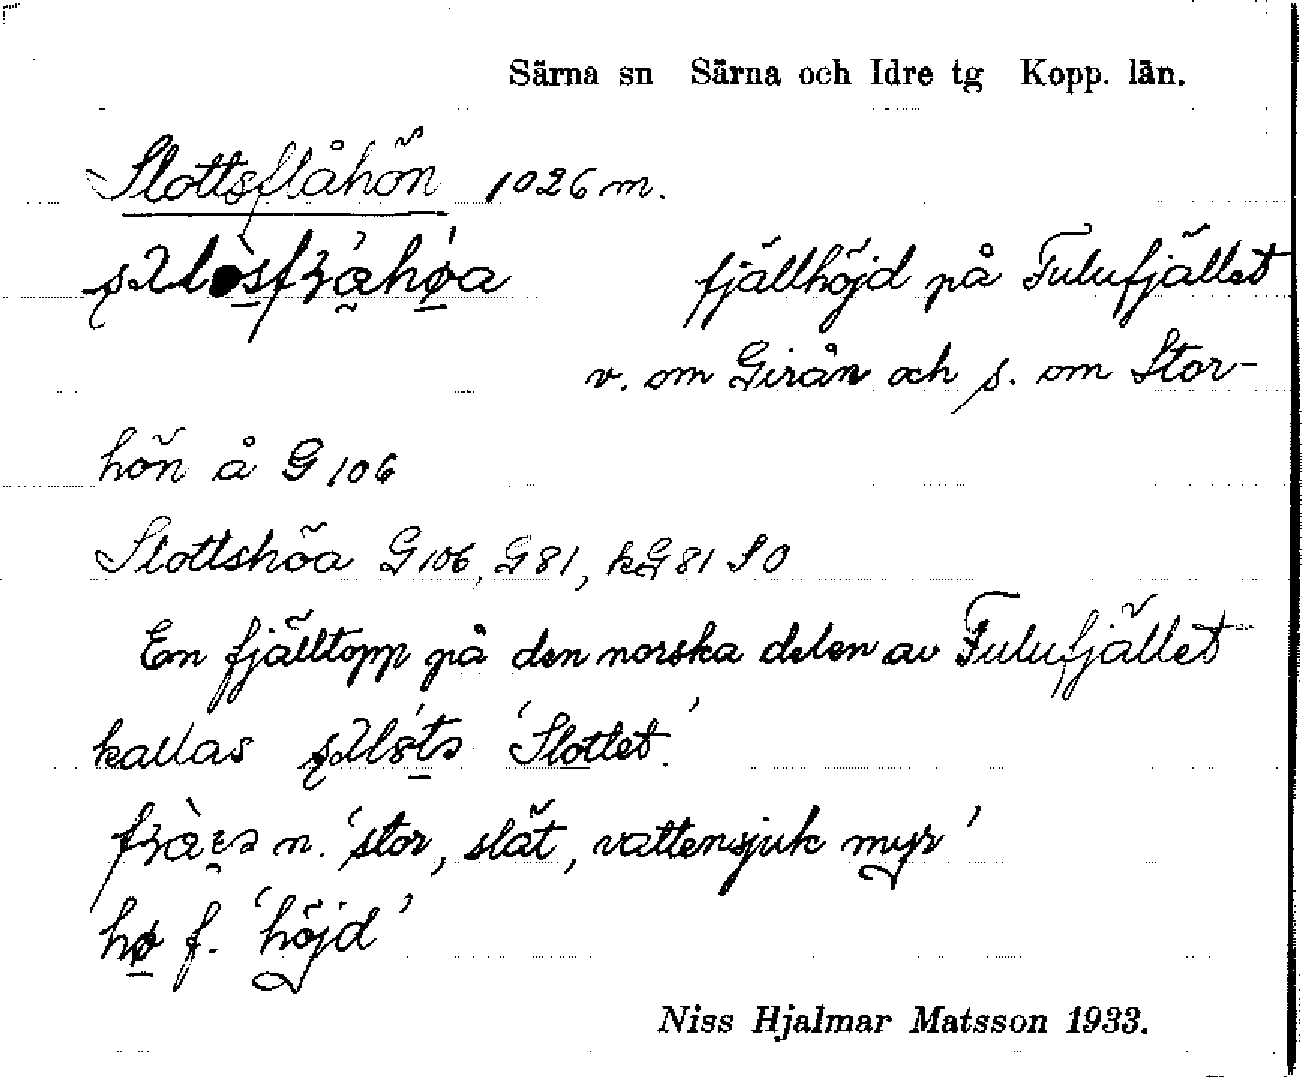 Särna sn Särna och Idre tg Kopp. län.
Slottsflåhön 1026 m.
fjällhöjd på Fulufjället
v. om Girån och s. om Stor-
hön å G 106
Slottshöa G 106, G 81, kG 81 SO
En fjälltopp på den norska delen av Fulufjället
kallas 'Slottet.'
n. 'stor, slät, vattensjuk myr'
hø f. 'höjd'
Niss Hjalmar Matsson 1933.